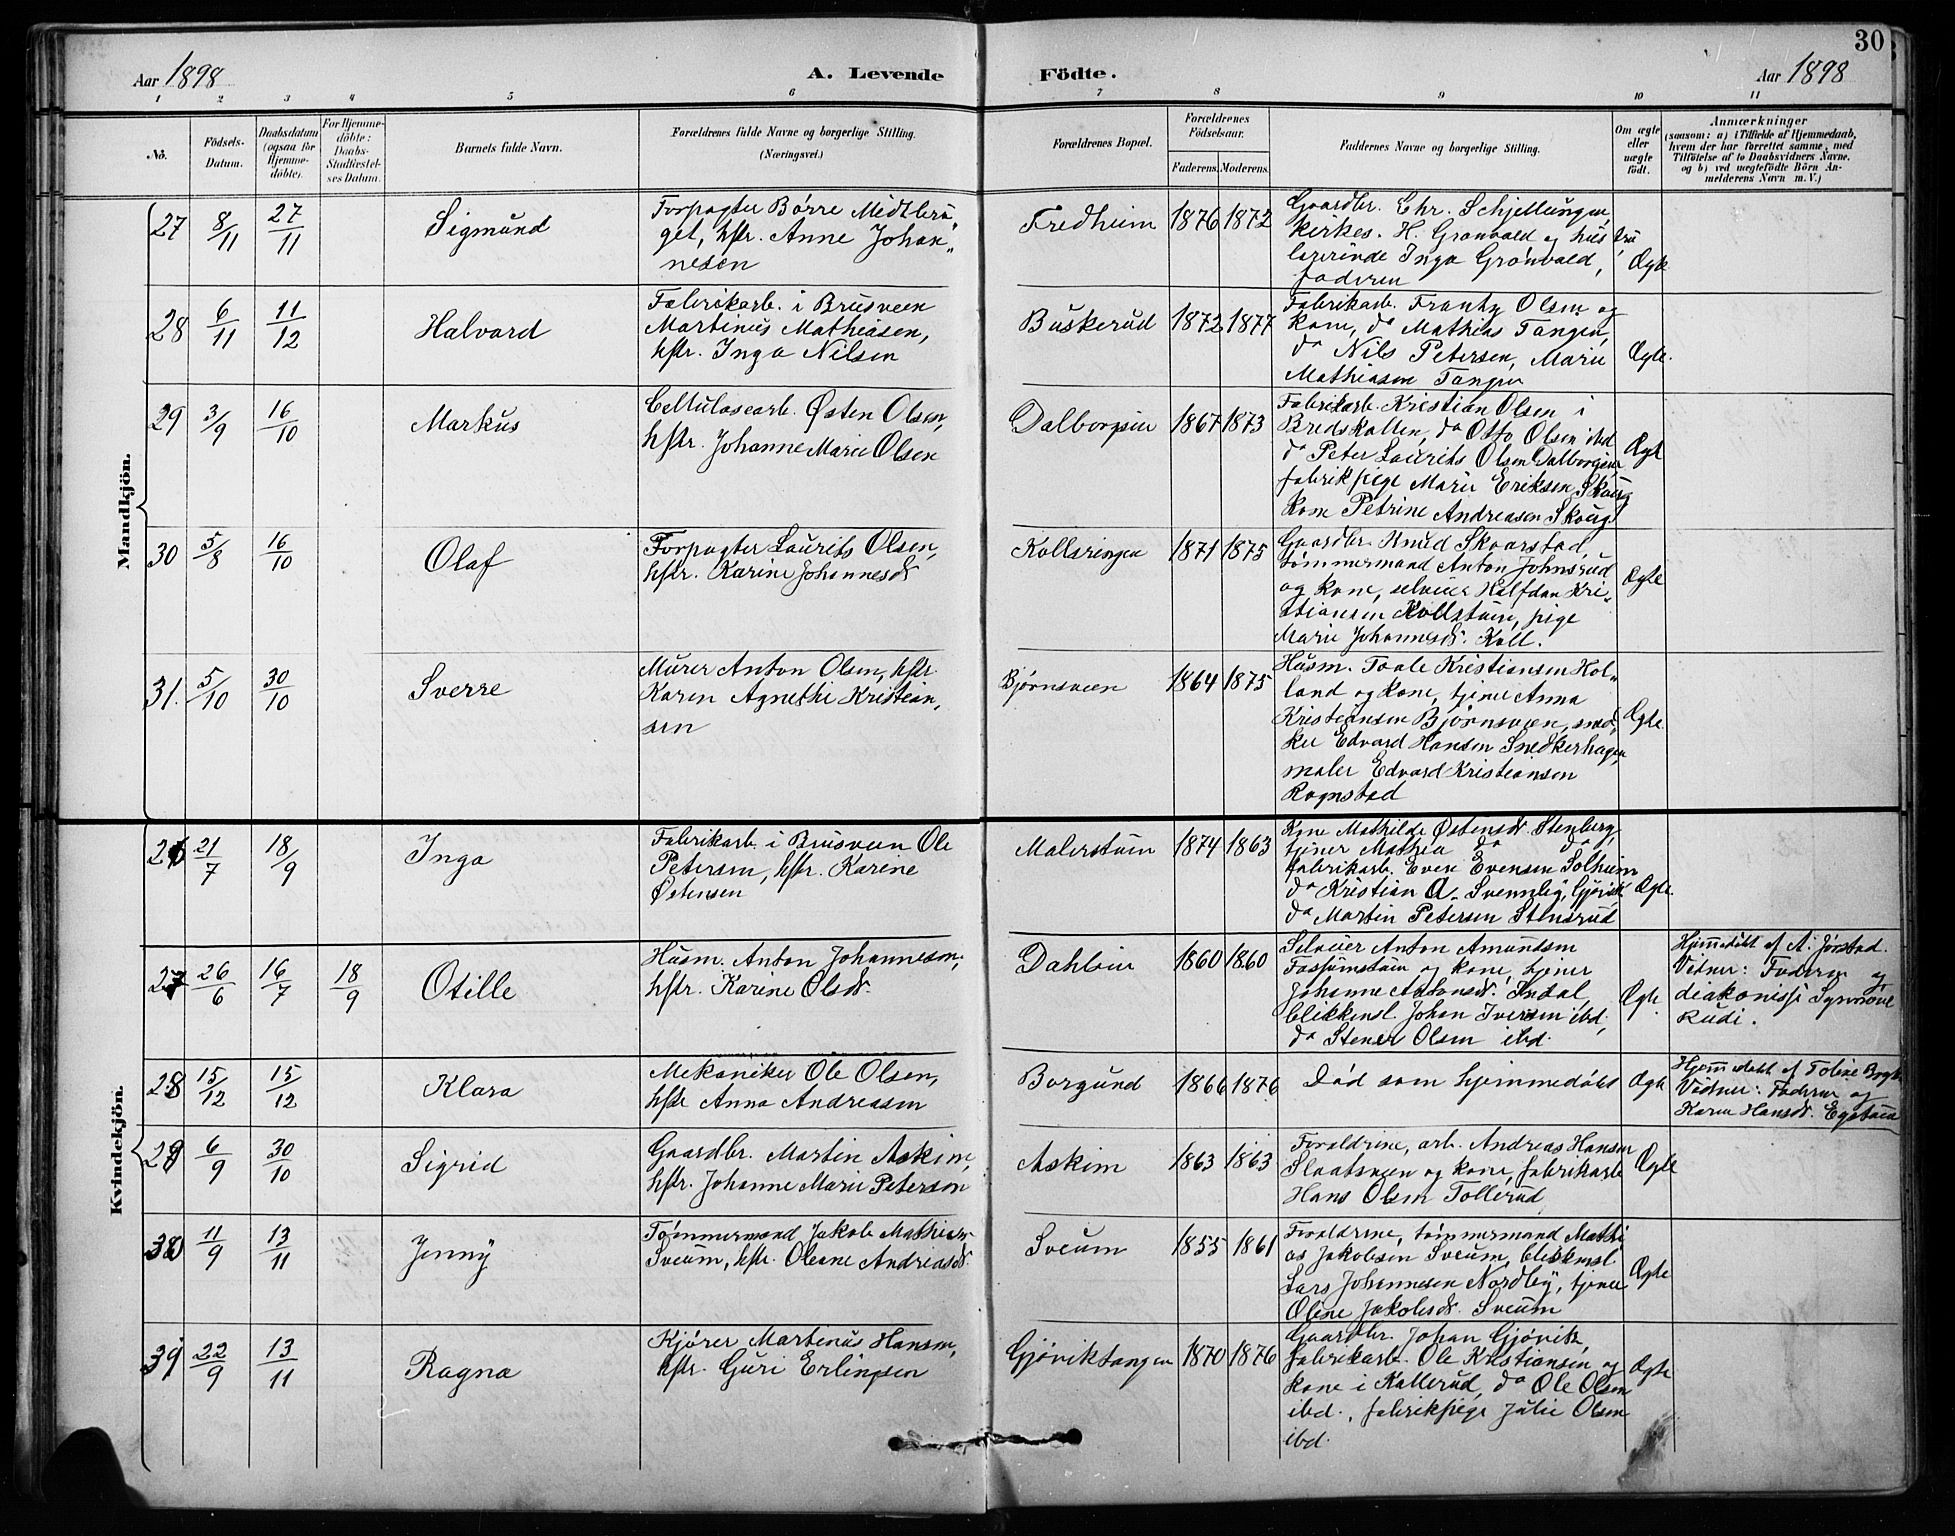 30
Aar 1898
A. Levende
Födte.
Aar 1898
1 2 3 4 5 6 7 8 9 10 11
No.
Födsels-
Datum.
Daabsdatum
(ogsaa for
Hjemme-
döbte).
For Hjemme-
döbte:
Daabs-
Stadfæstel-
ses Datum.
Barnets fulde Navn.
Forældrenes fulde Navne og borgerlige Stilling.
(Næringsvei.)
Forældrenes Bopæl.
Forældrenes
Födselsaar.
Faderens. Moderens.
Faddernes Navne og borgerlige Stilling.
Om ægte
eller
uægte
födt.
Anmærkninger
(saasom: a) i Tilfælde af Hjemmedaab,
hvem der har forrettet samme, med
Tilföielse af to Daabsvidners Navne,
og b) ved uægtefödte Börn An-
melderens Navn m. V.)
Mandkjön.
27 8/11 27/11 Sigmund
Forpagter Børre Midtbrü
get, hstr. Anne Johan„
nesen
Fredheim 1876 1872
Gaardbr. Chr. Schjellungen,
kirkes. H. Grønvold og hüs frü
lærerinde Inga Grønvold,
faderen
Ægte
28 6/11 11/12 Halvard
Fabrikarb. i Brusveen
Martinus Mathiasen,
hstr. Inga Nilsen
Buskerud 1872 1877
Fabrikarb. Frantz Olsen og
kone, do Mathias Tangen,
do Nils Petersen, Marie
Mathiasen Tangen
Ægte.
29 3/9 16/10 Markus
Cellulosearb. Østen Olsen,
hstr. Johanne Marie Olsen
Dalborgsen 1867 1873
Fabrikarb. Kristian Olsen i
Bredskallen, do Otto Olsen ibd
do Peter Laurits Olsen Dalborgsen
fabrikpige Marie Eriksen Skoug
kone Petrine Andreasen Skoug
Ægte
30 5/8 16/10 Olaf
Forpagter Laurits Olsen,
hstr. Karine Johannesdr
Kollsringen 1871 1875
Gaardbr. Knud Skaarstad,
tømmermand Anton Johnsrud
og kone, selveier Halfdan Kri„
stiansen Kollstuen, pige
Marie Johannesdr. Koll.
Ægte
31. 5/10 30/10 Sverre
Murer Anton Olsen, hstr.
Karen Agnethe Kristian„
sen
Bjørnsveen 1864 1875
Husm. Taale Kristiansen Kol„
land og kone, tjener Anna
Kristiansen Bjørnsveen, sned„
ker Edvard Hansen Snedkerhagen
maler Edvard Kristiansen
Rognstad
Ægte.
Kvindekjön.
26 21/7 18/9 Inga
Fabrikarb. i Brusveen Ole
Petersen, hstr. Karine
Østensen
Malerstuen 1874 1863
Kone Mathilde Østensdr. Stenberg,
tjener Mathea do do
fabrikarb. Even Evensen Solheim
do Kristian A. Svennby, Gjøvik
do Martin Petersen Stensrud
Ægte.
27 26/6 16/7 18/9 Otille
Husm. Anton Johannesen,
hstr. Karine Olsdr.
Dahlein 1860 1860
Selveier Anton Amundsen
Fossumstuen og kone, tjener
Johanne Antonsdr. Indal,
blikkensl. Johan Iversen ibd,
do Stener Olsen ibd.
Ægte.
Hjemmedøbt af A. Jørstad.
Vidner: Faderen og
diakonisse Synnøve
Rudi.
28 15/12 15/12 Klara
Mekaniker Ole Olsen,
hstr Anna Andreasen
Borgund 1866 1876
Død som hjemmedøbt
Ægte
Hjemmedøbt af Toline
Vidner: Faderen og
Karen Hansdr. Egstuen
29 6/9 30/10 Sigrid
Gaardbr. Martin Askim,
hstr. Johanne Marie Peterson
Askim 1863 1863
Forældrene, arb. Andreas Hansen
Slaatsveen og kone, fabrikarb
Hans Olsen Tollerud
Ægte
30 11/9 13/11 Jenny
Tømmermand Jakob Mathiasen
Sveum, hstr. Oleane Andreasdr.
Sveum 1855 1861
Forældrene, tømmermand Mathi
as Jakobsen Sveum, blikkensl
Lars Johannesen Nordby, tjener
Oline Jakobsdr. Sveum
Ægte
31 22/9 13/11 Ragna
Kjører Martinus Hansen,
hstr. Guri Erlingsen
Gjøviktangen 1870 1876
Gaardbr. Johan Gjøvik,
fabrikarb. Ole Kristiansen og
kone i Kallerud, do Ole Olsen
ibd., fabrikpige Julie Olsen
ibd.
Ægte